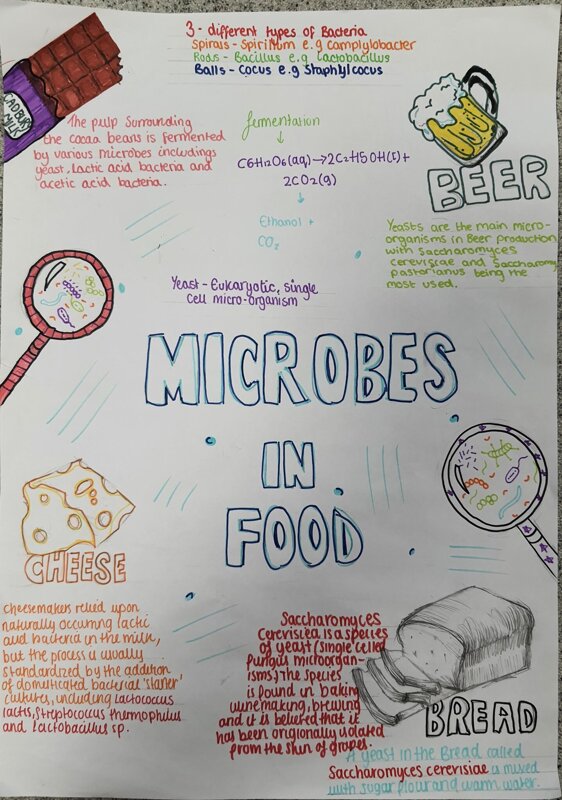 3- different types of Bacteria
Spirals - Spirillum e.g Camplylobacter
Rods - Bacillus e.g Lactobacillus
Balls - Cocus e.g Staphylcocus
CADBURY
MILK
The pulp surrounding
the cocoa beans is fermented
by various microbes includings
yeast, Lactic acid bacteria and
acetic acid bacteria.
fermentation
↓
C6H12O6(aq)→2C2H5OH(l)+
2CO2(g)
↓
Ethanol +
CO2
BEER
Yeasts are the main micro-
organisms in Beer production
with Saccharomyces
cereviscae and Saccharomy
pastorianus being the
most used.
Yeast - Eukaryotic, single
cell micro-organism
MICROBES
IN
FOOD
CHEESE
Cheesemakers relied upon
naturally occurring lactic
acid bacteria in the milk,
but the process is usually
standardized by the addition
of domiticated bacterial 'starter'
cultures, including Lactococcus
lactis, Streptococcus thermophulus
and Lactobacillus sp.
Saccharomyces
Cerevisiea is a species
of yeast (single celled
fungus microorgan-
isms) The species
is found in baking
winemaking, brewing
and it is believed that it
has been origionally isolated
from the skin of grapes.
BREAD
A yeast in the Bread called
Saccharomyces cerevisiae is mixed
with sugar flour and warm water.